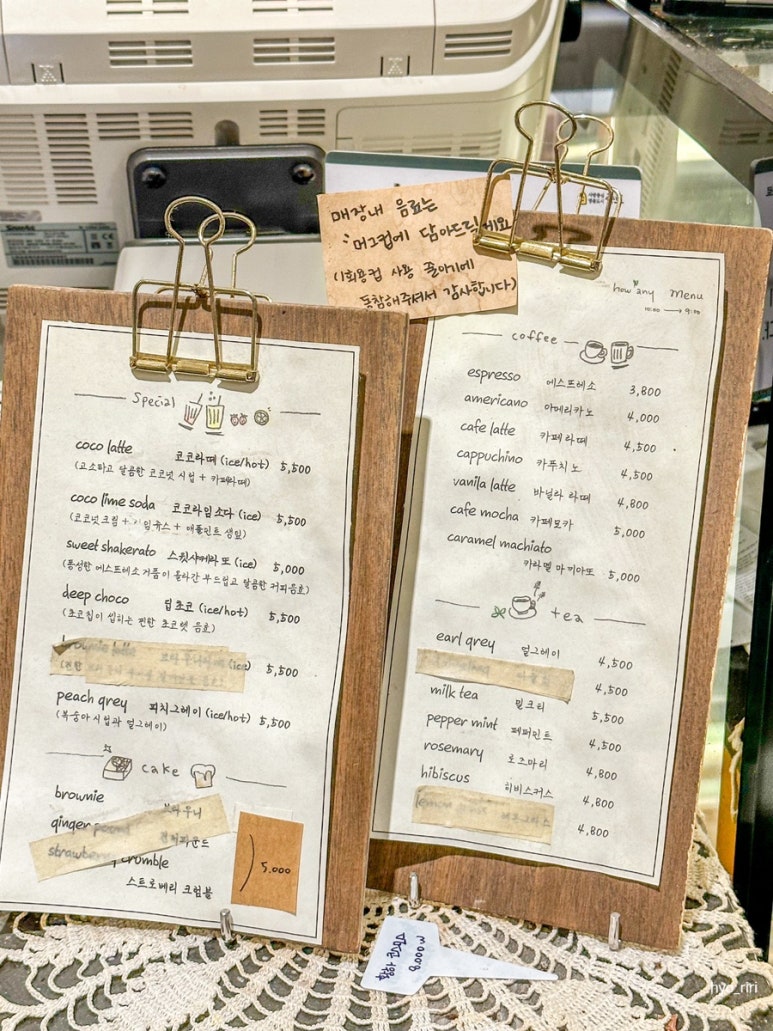 매장내 음료는
머그컵에 담아드릴게요
(1회용컵 사용 줄이기에
동참해주셔서 감사합니다)
Special
coco latte 코코라떼 (ice/hot) 5,500
(고소하고 달콤한 코코넛 시럽 + 카페라떼)
coco lime soda 코코라임소다 (ice) 5,500
(코코넛크림 + 라임쥬스 + 애플민트 생잎)
sweet shakerato 스윗샤케라또 (ice) 5,000
(풍성한 에스프레소 거품이 올라간 부드럽고 달콤한 커피음료)
deep choco 딥초코 (ice/hot) 5,500
(초코칩이 씹히는 찐한 초코렛 음료)
(ice) 5,500
peach grey 피치그레이 (ice/hot) 5,500
(복숭아 시럽과 얼그레이)
cake
brownie 브라우니
ginger 진저파운드
strawberry crumble
스트로베리 크럼블
) 5.000
how any Menu
10:00 → 9:00
coffee
espresso 에스프레소 3,800
americano 아메리카노 4,000
cafe latte 카페라떼 4,500
cappuchino 카푸치노 4,500
vanila latte 바닐라 라떼 4,800
cafe mocha 카페모카 5,000
caramel machiato
카라멜 마끼아또 5,000
tea
earl grey 얼그레이 4,500
4,500
milk tea 밀크티 5,500
pepper mint 페퍼민트 4,500
rosemary 로즈마리 4,800
hibiscus 히비스커스 4,800
4,800
8,000₩
hye_riri